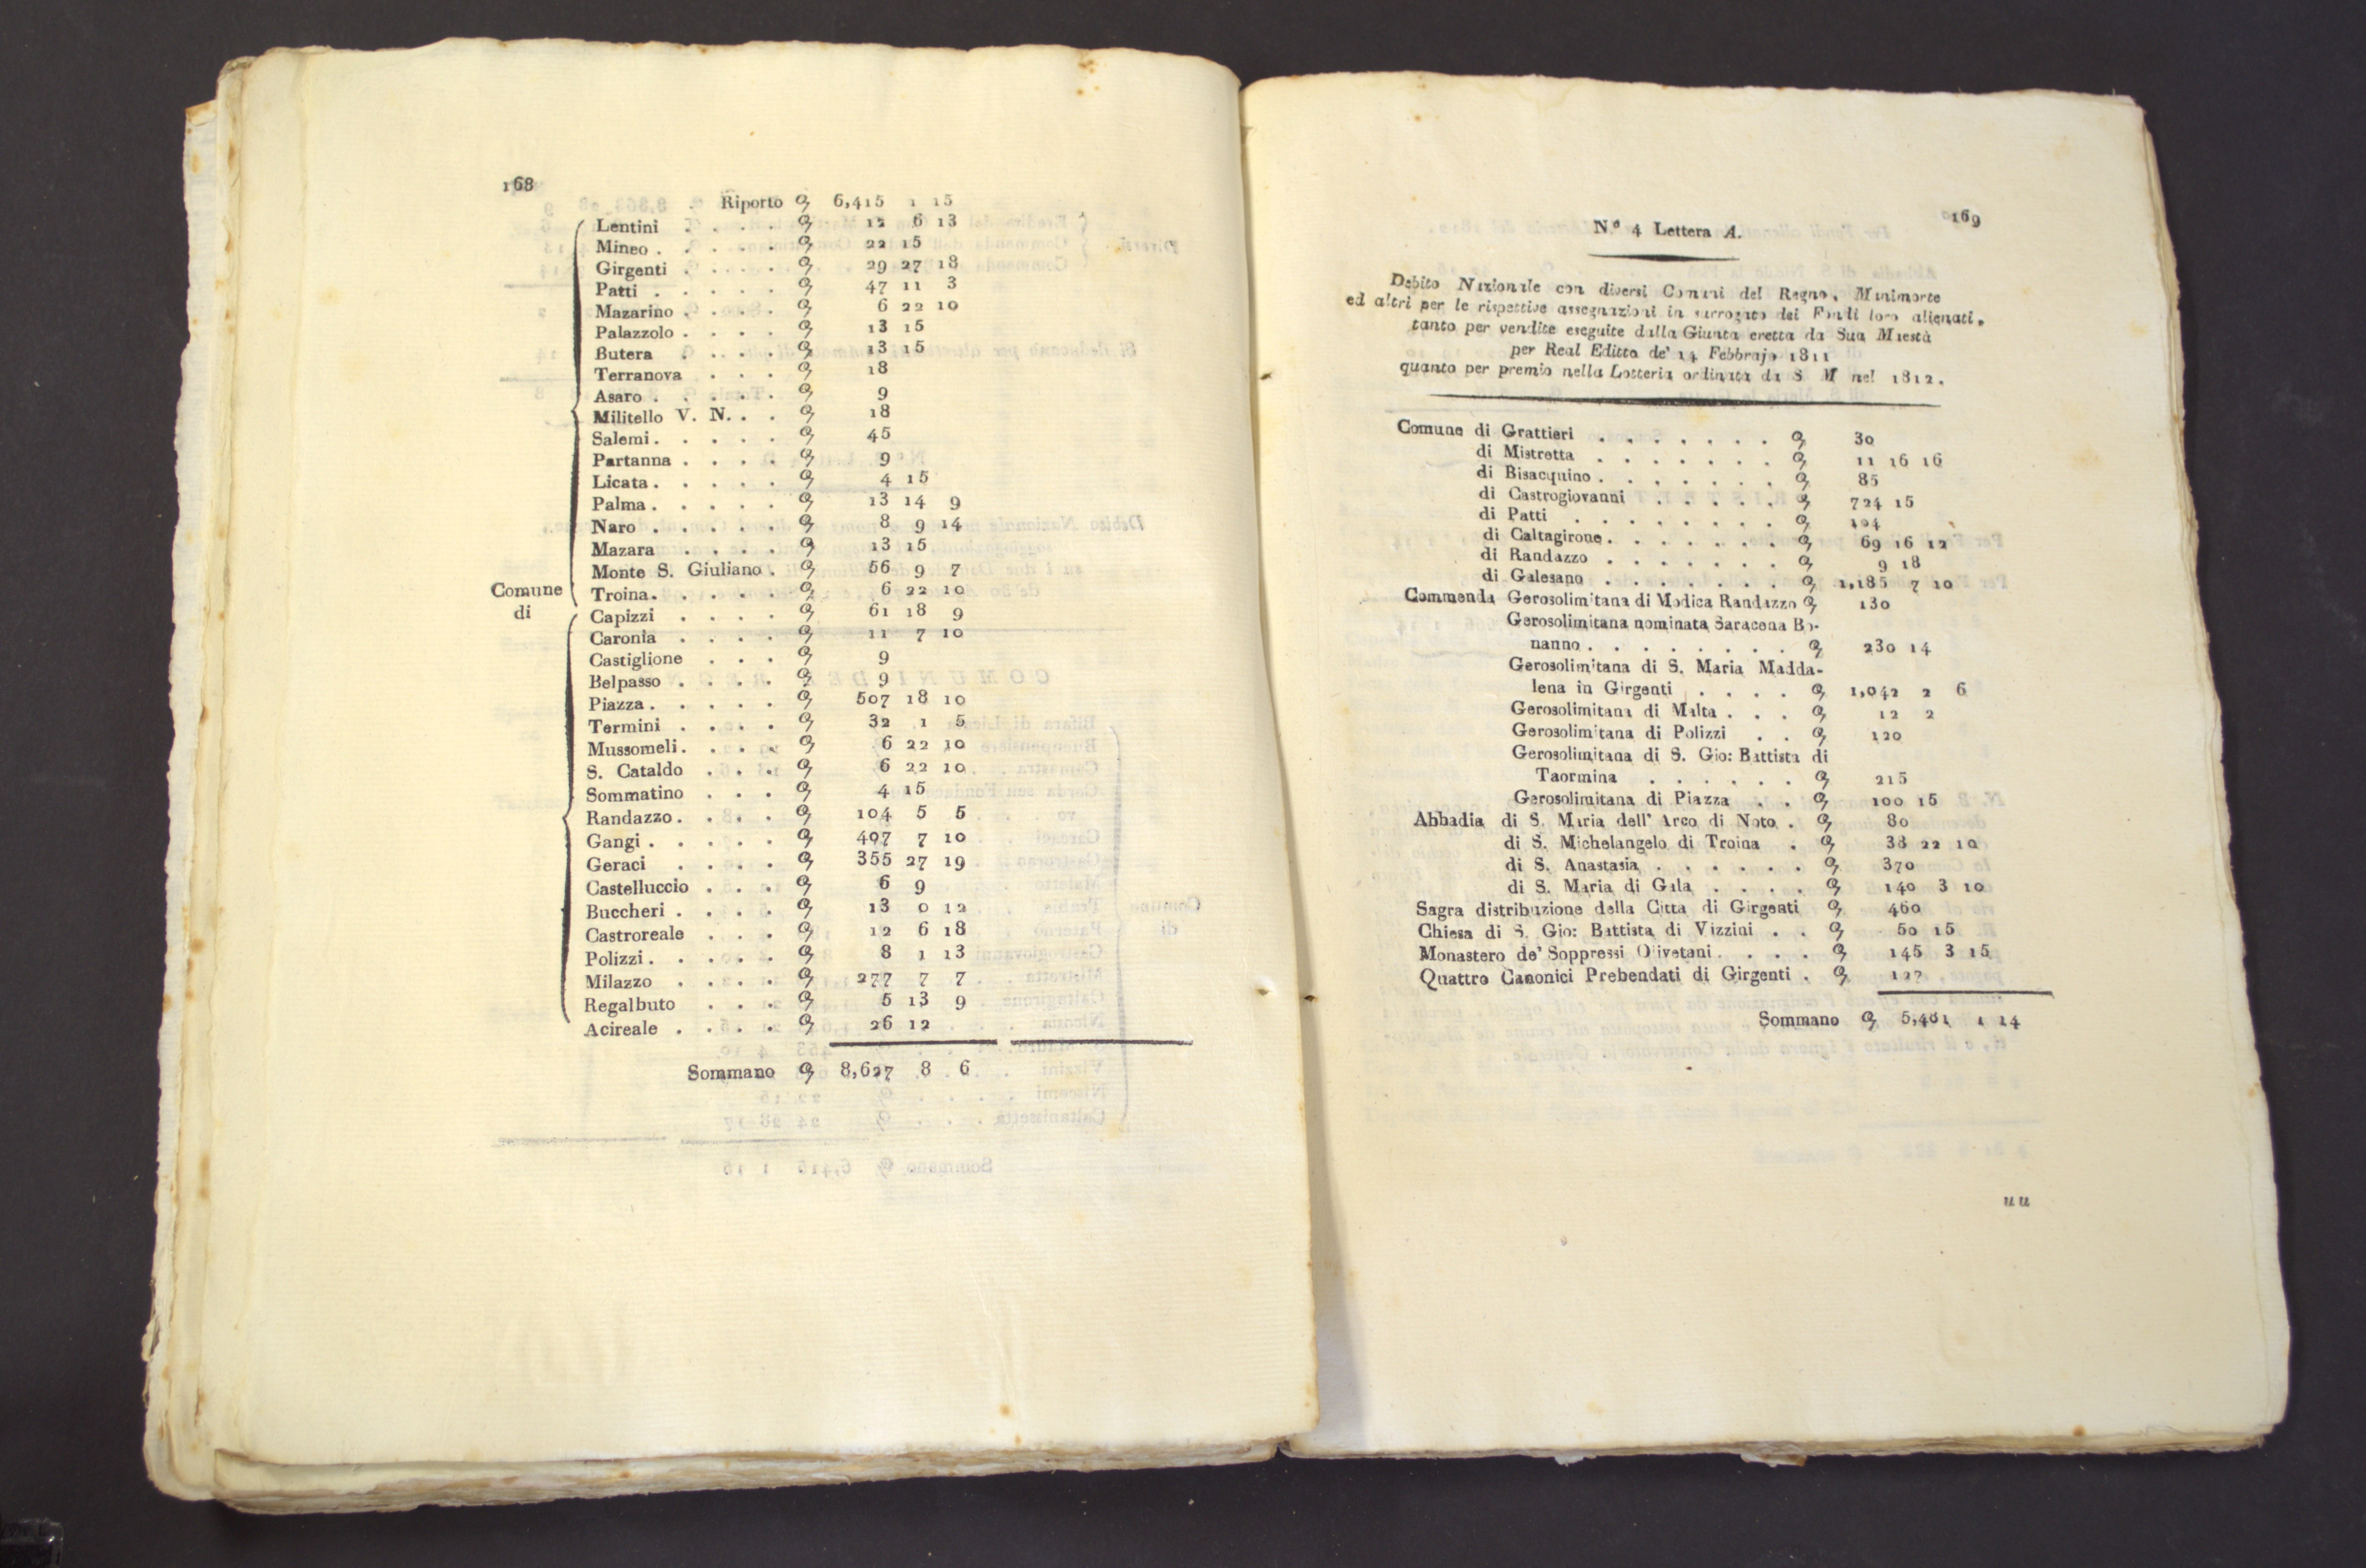 168
Riporto 6,415 1 15
Lentini . . . . 12 6 13
Mineo . . . . . 22 15
Girgenti . . . . . 29 27 18
Patti . . . . . 47 11 3
Mazarino . . . . 6 22 10
Palazzolo . . . . 13 15
Butera . . . . 13 15
Terranova . . . 18
Asaro . . . . . 9
Militello V. N. . . 18
Salemi . . . . . 45
Partanna . . . . 9
Licata . . . . . 4 15
Palma . . . . . 13 14 9
Naro . . . . . 8 9 14
Mazara . . . . 13 15
Monte S. Giuliano . 56 9 7
Comune di
Troina . . . . . 6 22 10
Capizzi . . . . 61 18 9
Caronia . . . . 11 7 10
Castiglione . . . 9
Belpasso . . . . 9
Piazza . . . . . 507 18 10
Termini . . . . 32 1 5
Mussomeli . . . . 6 22 10
S. Cataldo . . . 6 22 10
Sommatino . . . 4 15
Randazzo . . . . 104 5 5
Gangi . . . . . 407 7 10
Geraci . . . . 355 27 19
Castelluccio . . . 6 9
Buccheri . . . . 13 0 12
Castroreale . . . 12 6 18
Polizzi . . . . . 8 1 13
Milazzo . . . . 277 7 7
Regalbuto . . . 5 13 9
Acireale . . . . 26 12
Sommano 8,627 8 6
169
N.º 4 Lettera A.
Debito Nazionale con diversi Comuni del Regno, Manimorte
ed altri per le rispettive assegnazioni in surrogato dei Fondi loro alienati,
tanto per vendite eseguite dalla Giunta eretta da Sua Maestà
per Real Editto de' 14 Febbrajo 1811
quanto per premio nella Lotteria ordinata da S M nel 1812.
Comune di Grattieri . . . . . . . 30
di Mistretta . . . . . . . 11 16 16
di Bisacquino . . . . . . . 85
di Castrogiovanni . . . . . 724 15
di Patti . . . . . . . .
di Caltagirone . . . . . . . 69 16 12
di Randazzo . . . . . . . 9 18
di Galesano . . . . . . . 1,185 7 10
Commenda Gerosolimitana di Modica Randazzo 130
Gerosolimitana nominata Saracena Bo-
nanno . . . . . . . . 230 14
Gerosolimitana di S. Maria Madda-
lena in Girgenti . . . . 1,042 2 6
Gerosolimitana di Malta . . . 12 2
Gerosolimitana di Polizzi . . 120
Gerosolimitana di S. Gio: Battista di
Taormina . . . . . . 215
Gerosolimitana di Piazza . . 100 15
Abbadia di S. Maria dell' Arco di Noto . 80
di S. Michelangelo di Troina . 38 22 10
di S. Anastasia . . . . . . 370
di S. Maria di Gala . . . . 140 3 10
Sagra distribuzione della Citta di Girgenti 460
Chiesa di S. Gio: Battista di Vizzini . . 50 15
Monastero de' Soppressi Olivetani . . . . 145 3 15
Quattro Canonici Prebendati di Girgenti . 127
Sommano 5,481 1 14
uu